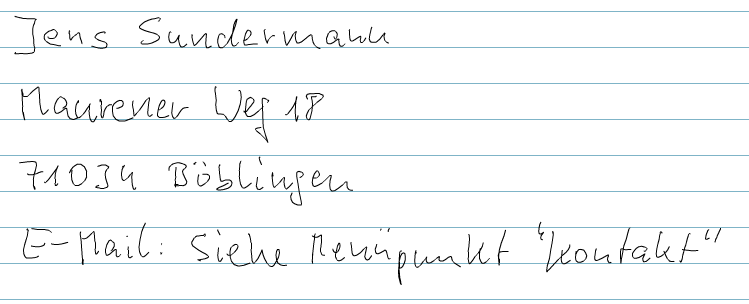 Jens Sundermann
Maurener Weg 18
71034 Böblingen
E-Mail: Siehe Menüpunkt "Kontakt"